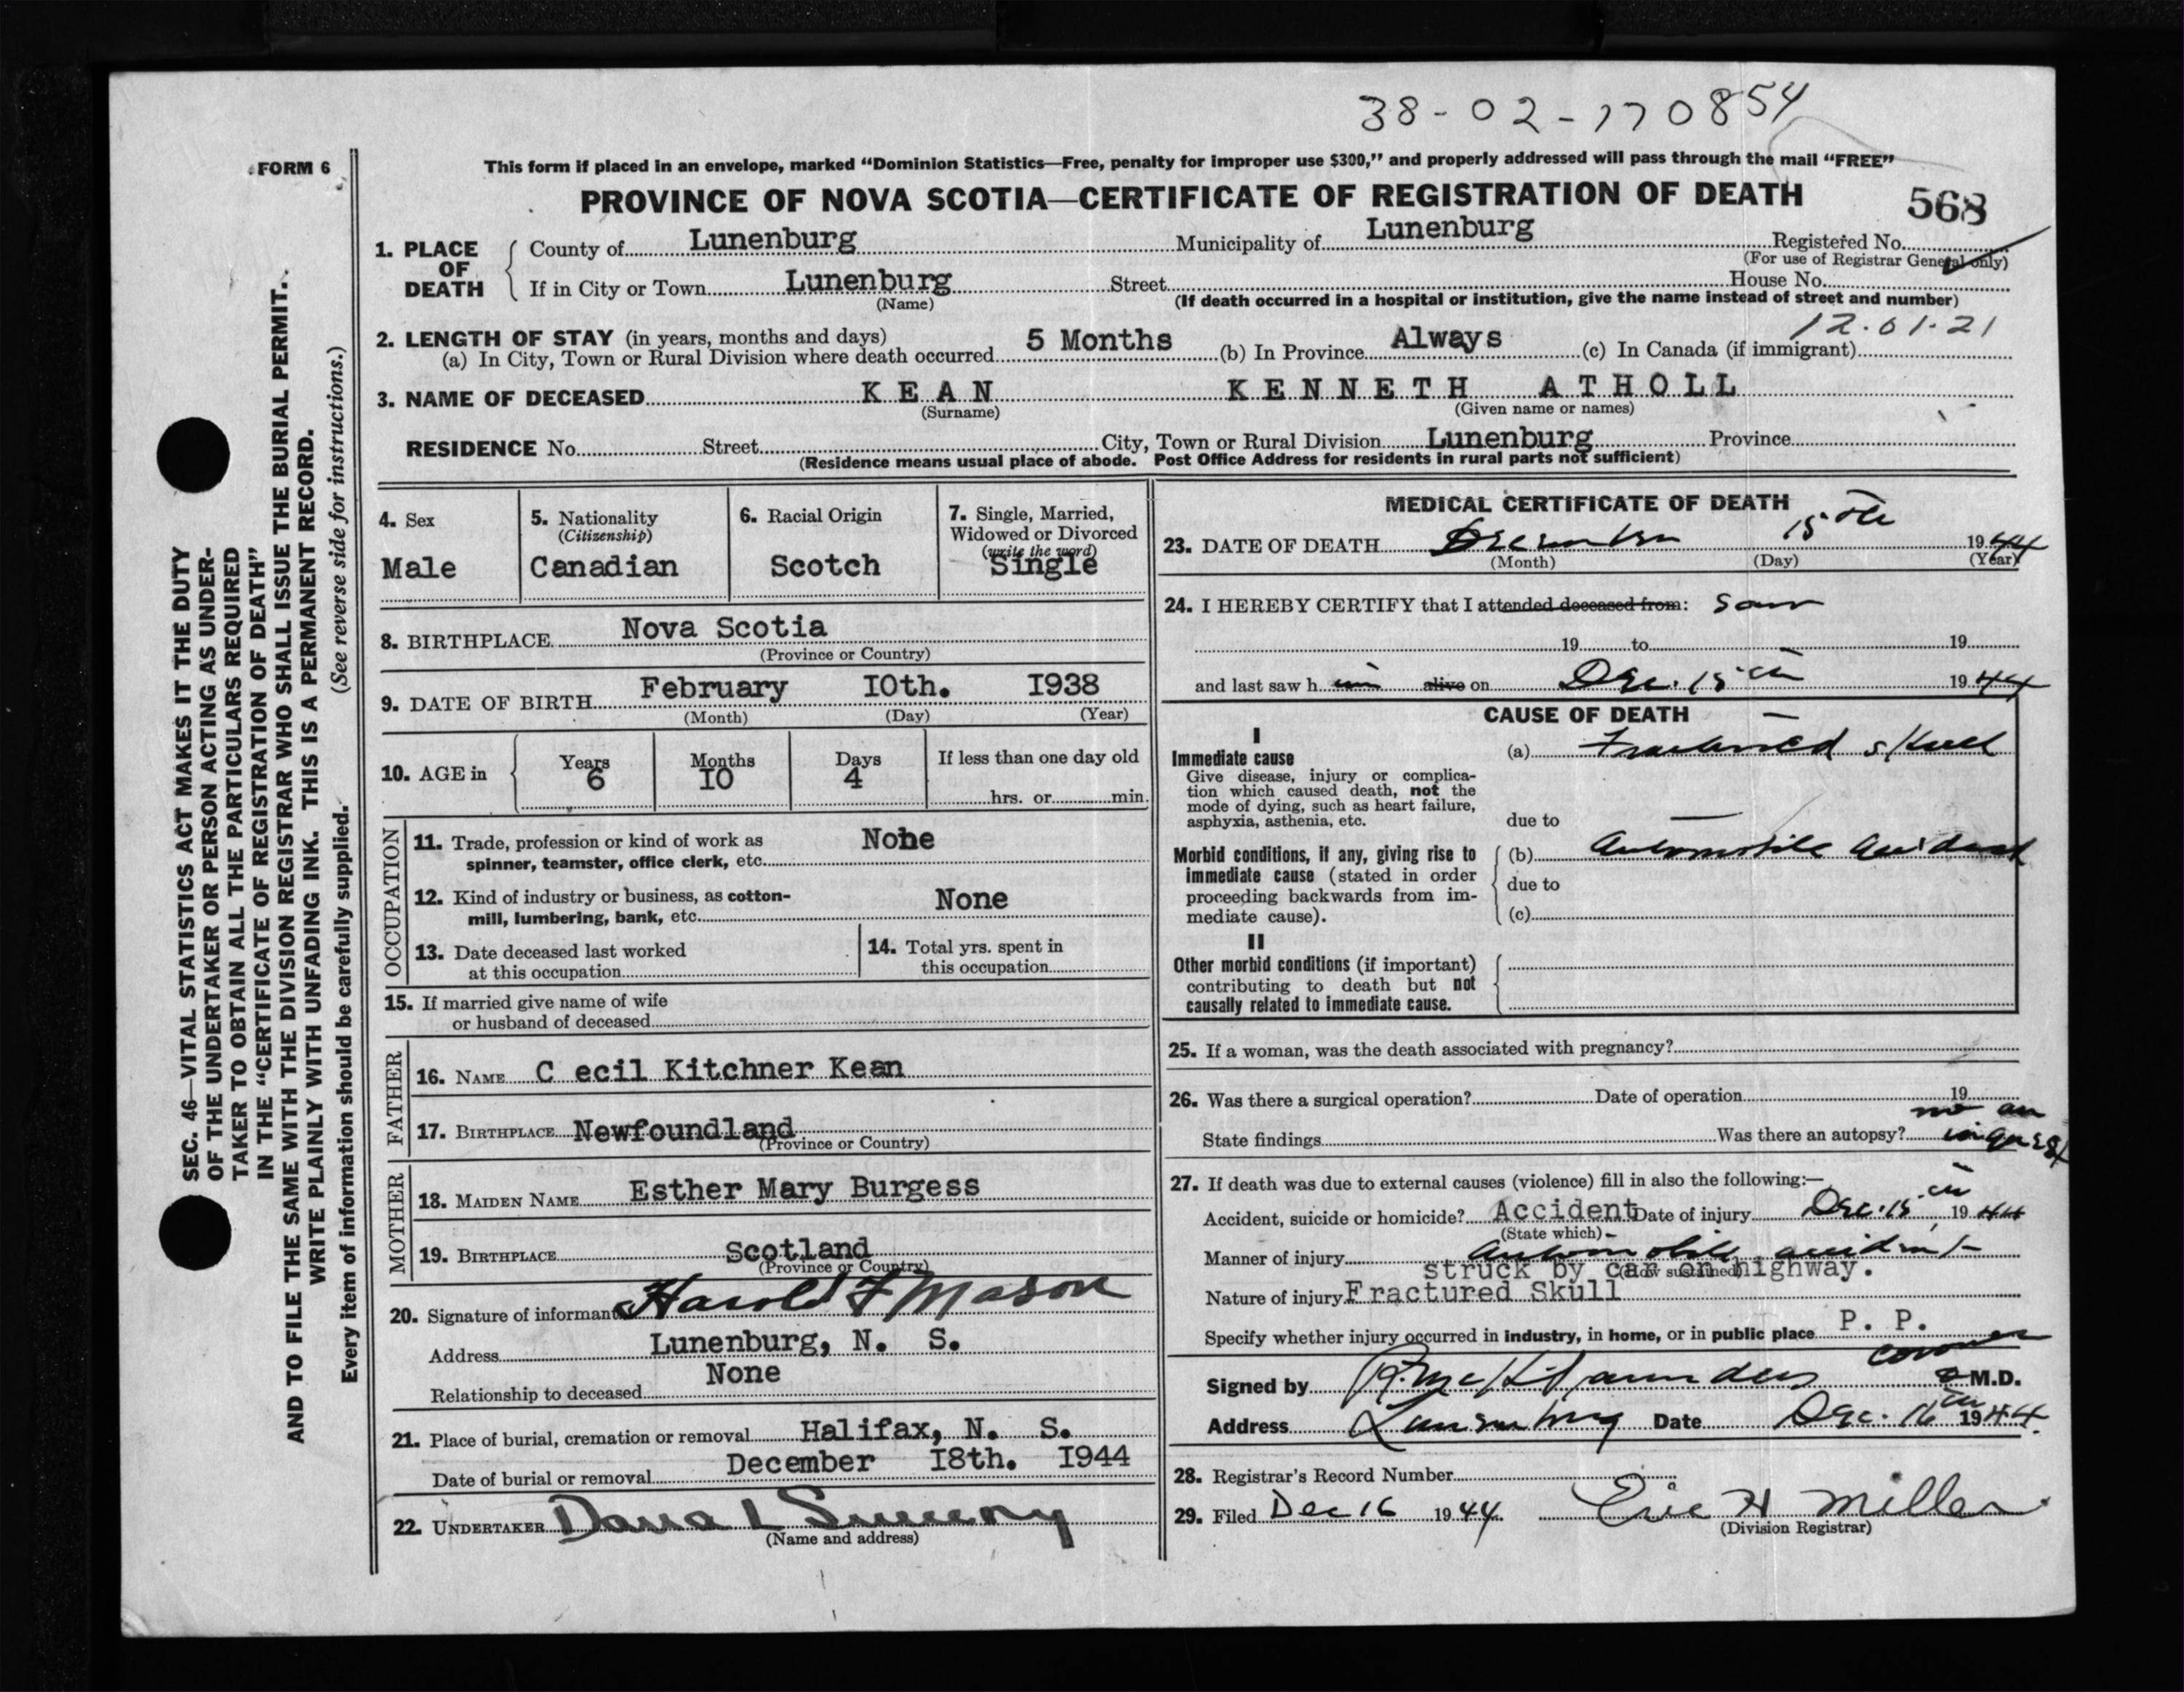 38-02-170854
FORM 6
This form if placed in an envelope, marked “Dominion Statistics—Free, penalty for improper use $300,” and properly addressed will pass through the mail “FREE”
PROVINCE OF NOVA SCOTIA—CERTIFICATE OF REGISTRATION OF DEATH
568
1. PLACE OF DEATH
County of Lunenburg Municipality of Lunenburg Registered No.
(For use of Registrar General only)
If in City or Town Lunenburg Street House No.
(Name) (If death occurred in a hospital or institution, give the name instead of street and number)
12.01.21
2. LENGTH OF STAY (in years, months and days)
(a) In City, Town or Rural Division where death occurred 5 Months (b) In Province Always (c) In Canada (if immigrant)
3. NAME OF DECEASED KEAN KENNETH ATHOLL
(Surname) (Given name or names)
RESIDENCE No. Street City, Town or Rural Division Lunenburg Province
(Residence means usual place of abode. Post Office Address for residents in rural parts not sufficient)
SEC. 46—VITAL STATISTICS ACT MAKES IT THE DUTY
OF THE UNDERTAKER OR PERSON ACTING AS UNDER-
TAKER TO OBTAIN ALL THE PARTICULARS REQUIRED
IN THE “CERTIFICATE OF REGISTRATION OF DEATH”
AND TO FILE THE SAME WITH THE DIVISION REGISTRAR WHO SHALL ISSUE THE BURIAL PERMIT.
WRITE PLAINLY WITH UNFADING INK. THIS IS A PERMANENT RECORD.
Every item of information should be carefully supplied. (See reverse side for instructions.)
4. Sex
Male
5. Nationality
(Citizenship)
Canadian
6. Racial Origin
Scotch
7. Single, Married,
Widowed or Divorced
(write the word)
Single
8. BIRTHPLACE Nova Scotia
(Province or Country)
9. DATE OF BIRTH February I0th. I938
(Month) (Day) (Year)
10. AGE in Years Months Days If less than one day old
6 I0 4
hrs. or min.
OCCUPATION
11. Trade, profession or kind of work as
spinner, teamster, office clerk, etc. None
12. Kind of industry or business, as cotton-
mill, lumbering, bank, etc. None
13. Date deceased last worked
at this occupation
14. Total yrs. spent in
this occupation
15. If married give name of wife
or husband of deceased
FATHER
16. NAME C ecil Kitchner Kean
17. BIRTHPLACE Newfoundland
(Province or Country)
MOTHER
18. MAIDEN NAME Esther Mary Burgess
19. BIRTHPLACE Scotland
(Province or Country)
20. Signature of informant Harold F Mason
Address Lunenburg, N. S.
Relationship to deceased None
21. Place of burial, cremation or removal Halifax, N. S.
Date of burial or removal December I8th. I944
22. UNDERTAKER Dana L Sweeny
(Name and address)
MEDICAL CERTIFICATE OF DEATH
23. DATE OF DEATH December 15th 1944
(Month) (Day) (Year)
24. I HEREBY CERTIFY that I attended deceased from: saw
19 to 19
and last saw h im alive on Dec. 15th 1944
CAUSE OF DEATH
I
Immediate cause
Give disease, injury or complica-
tion which caused death, not the
mode of dying, such as heart failure,
asphyxia, asthenia, etc.
(a) Fractured skull
due to
Morbid conditions, if any, giving rise to
immediate cause (stated in order
proceeding backwards from im-
mediate cause).
(b) Automobile accident
due to
(c)
II
Other morbid conditions (if important)
contributing to death but not
causally related to immediate cause.
25. If a woman, was the death associated with pregnancy?
26. Was there a surgical operation? Date of operation 19
State findings Was there an autopsy? no an
inquest
27. If death was due to external causes (violence) fill in also the following:—
Accident, suicide or homicide? Accident Date of injury Dec. 15th, 1944
(State which)
Manner of injury automobile accident
struck by car on highway.
(How sustained)
Nature of injury Fractured Skull
Specify whether injury occurred in industry, in home, or in public place P. P.
coroner
Signed by R. McK Saunders M.D.
Address Lunenburg Date Dec. 16th 1944.
28. Registrar's Record Number
29. Filed Dec 16 1944. Eric H Miller
(Division Registrar)